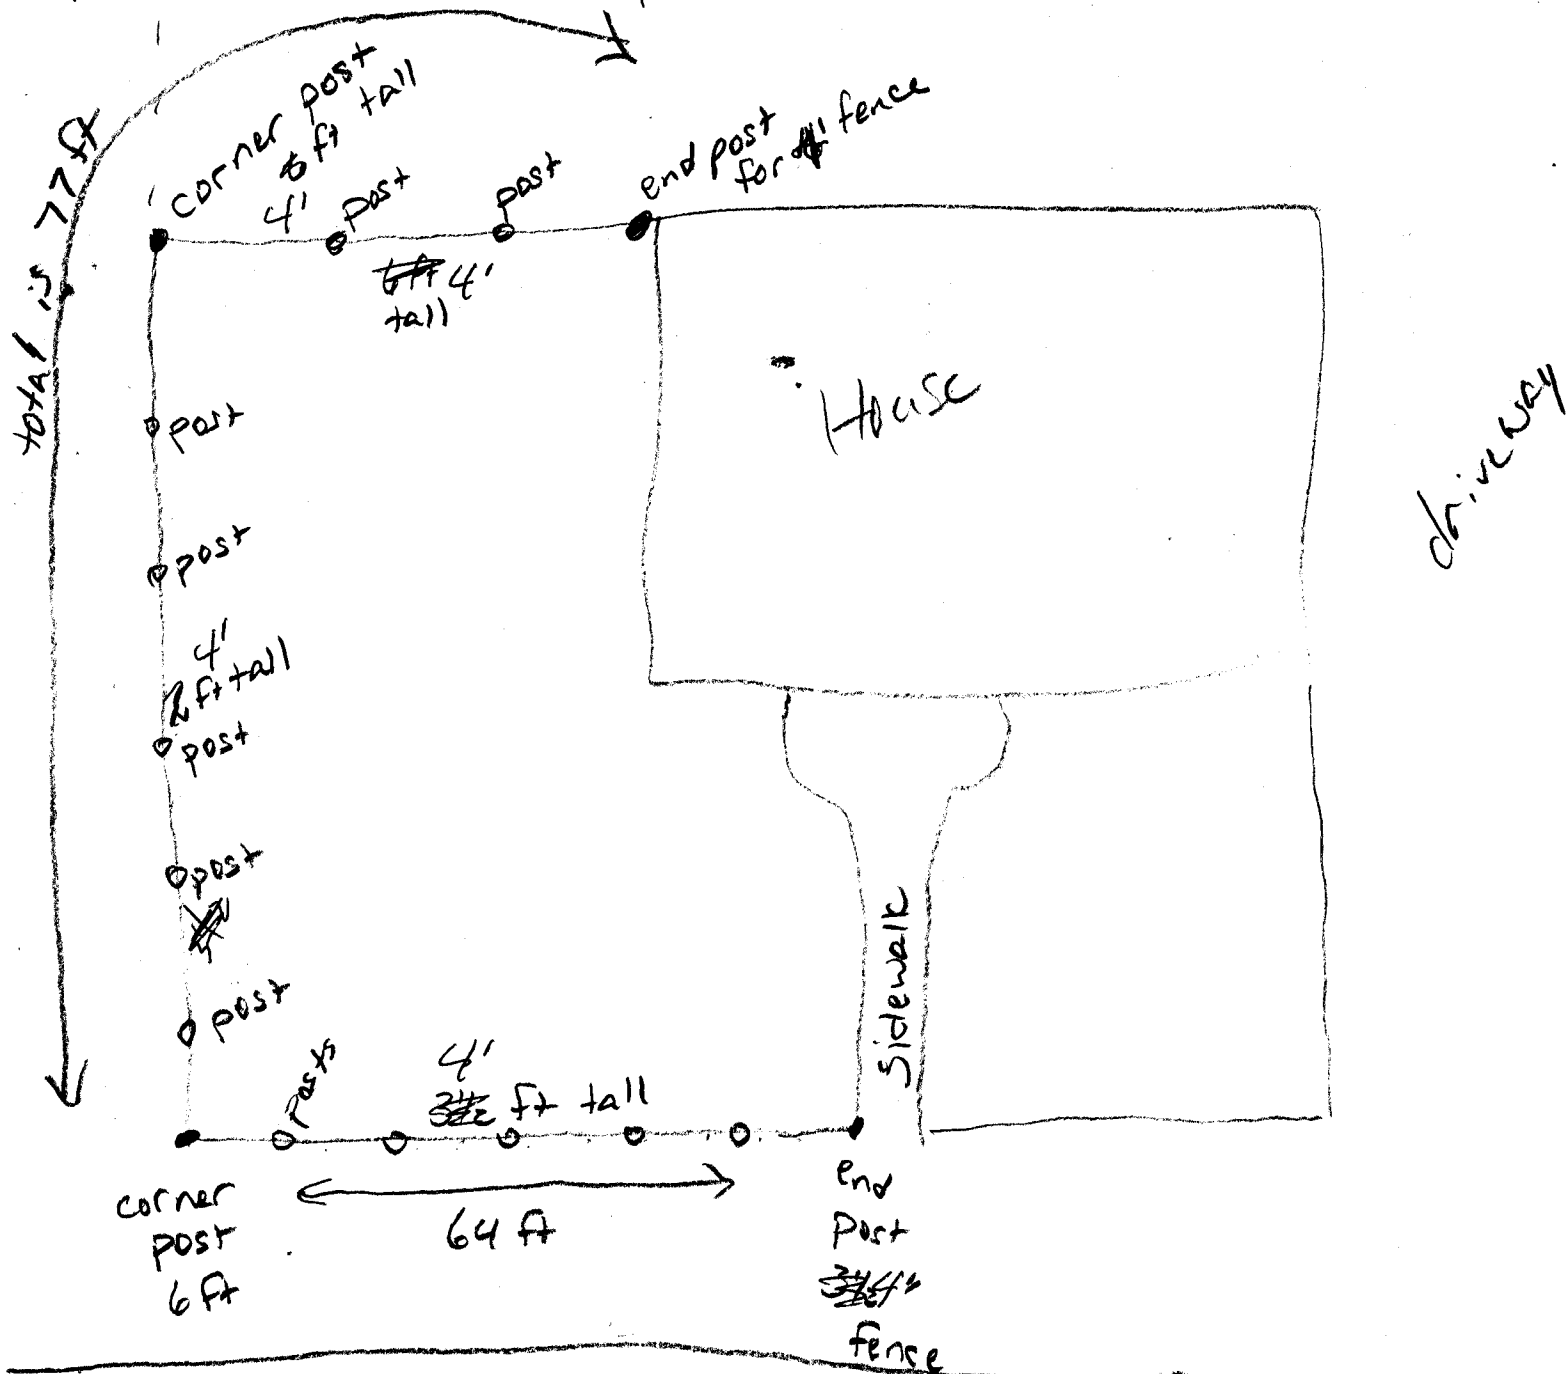 total is 77 ft
corner post
6 ft tall
4'
post
post
end post
for 4' fence
6 ft 4'
tall
House
driveway
post
post
4'
2 ft tall
post
post
post
posts
4'
3 1/2 ft tall
sidewalk
corner
post
6 ft
64 ft
end
post
fence